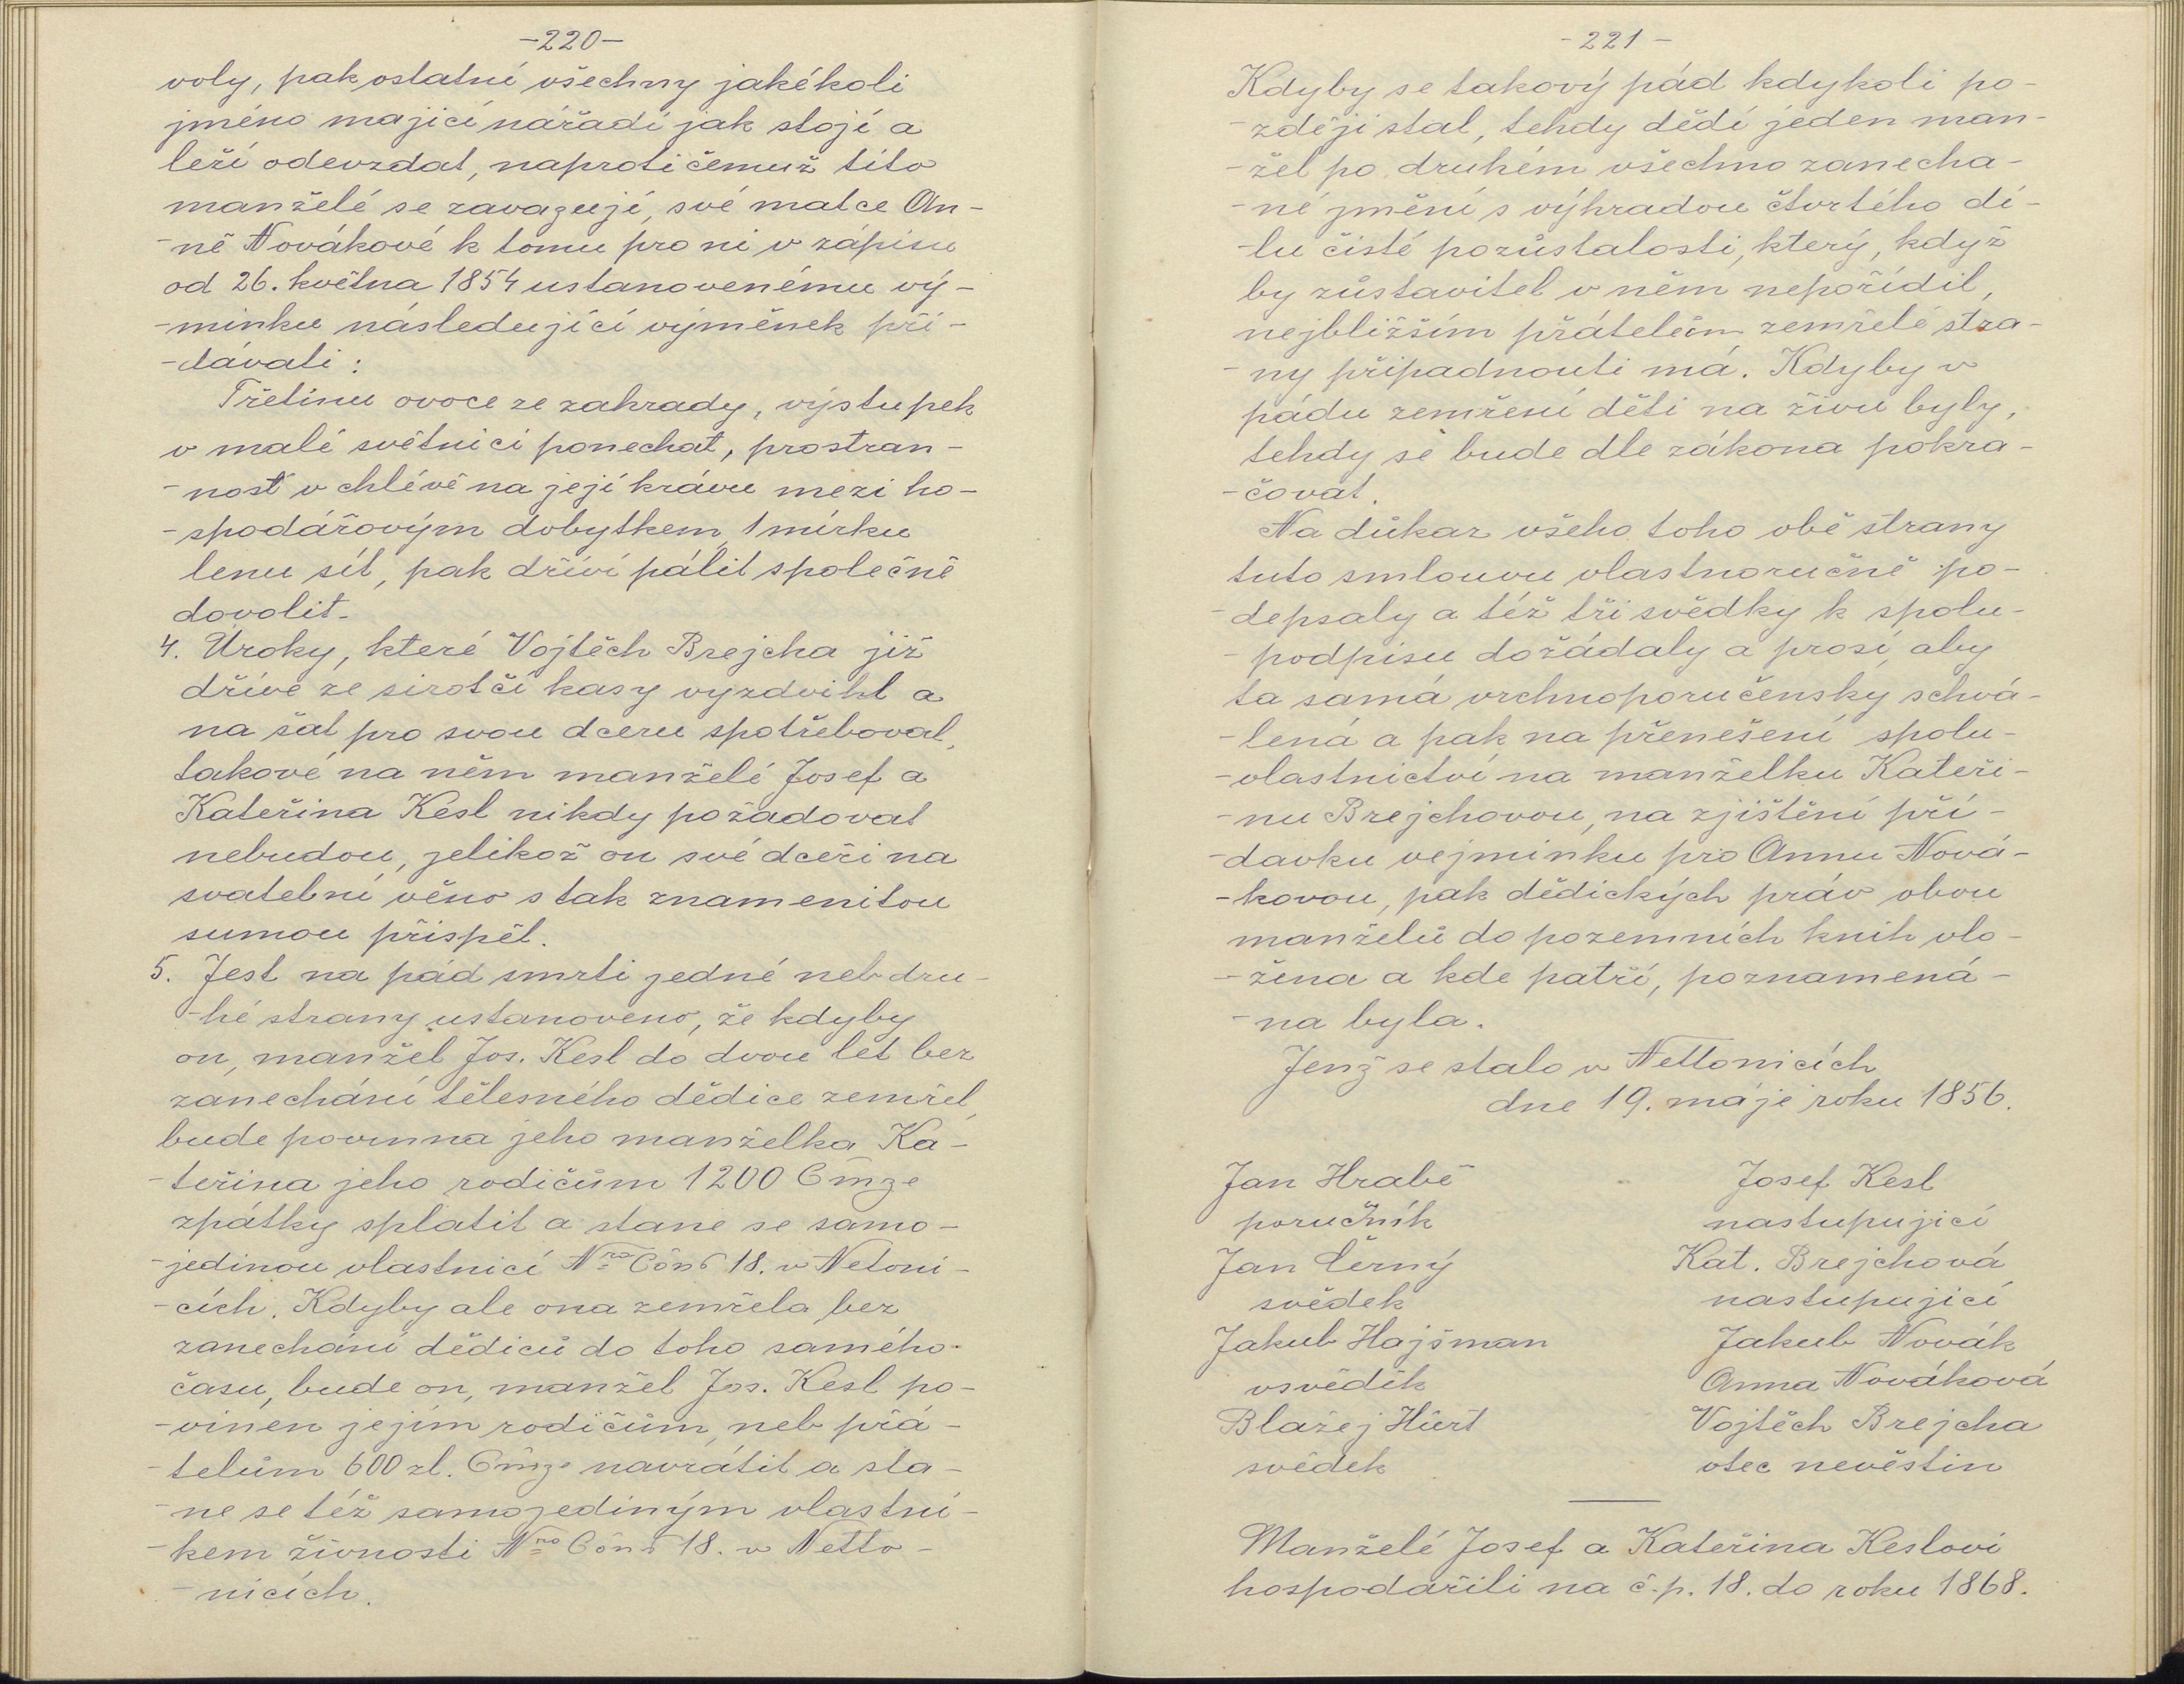 -220-
voly, pak ostatní všechny jakékoli
jméno majicí nářadí jak stojí a
leží odevzdat, naproti čemuž tito
manželé se zavazují, své matce An-
-ně Novákové k tomu pro ni v zápisu
od 26. května 1854 ustanovenému vý-
-minku následující výměnek při-
-dávati:
Třetinu ovoce ze zahrady, výstupek
v malé světnici ponechat, prostran-
-nost v chlévě na její krávu mezi ho-
-spodářovým dobytkem, 1 mírku
lenu sít, pak dříví pálit společně
dovolit.
4. Úroky, které Vojtěch Brejcha již
dříve ze sirotčí kasy vyzdvihl a
na šat pro svou dceru spotřeboval,
takové na něm manželé Josef a
Kateřina Kesl nikdy požadovat
nebudou, jelikož on své dceři na
svatební věno s tak znamenitou
sumou přispěl.
5. Jest na pád smrti jedné neb dru-
-hé strany ustanoveno, že kdyby
on, manžel Jos. Kesl do dvou let bez
zanechání tělesného dědice zemřel,
bude povinna jeho manželka Ka-
-teřina jeho rodičům 1200 Cmze
zpátky splatit a stane se samo-
-jedinou vlastnicí Nro Cons 18. v Netoni-
-cích. Kdyby ale ona zemřela bez
zanechání dědiců do toho samého
času, bude on, manžel Jos. Kesl po-
-vinen jejím rodičům, neb přá-
-telům 600 zl. Cmze navrátit a sta-
-ne se též samojediným vlastní-
-kem živnosti Nro Cons 18. v Netto-
-nicích.
-221-
Kdyby se takový pád kdykoli po-
-zději stal, tehdy dědí jeden man-
-žel po druhém všechno zanecha-
-né jmění s výhradou čtvrtého dí-
-lu čisté pozůstalosti, který, když
by zůstavitel v něm nepořídil,
nejbližším přátelům zemřelé stra-
-ny připadnouti má. Kdyby v
pádu zemření děti na živu byly,
tehdy se bude dle zákona pokra-
-čovat.
Na důkaz všeho toho obě strany
tuto smlouvu vlastnoručně po-
-depsaly a též tři svědky k spolu-
-podpisu dožádaly a prosí, aby
ta samá vrchnoporučensky schvá-
-lená a pak na přenešení spolu-
-vlastnictví na manželku Kateři-
-nu Brejchovou, na zjištění pří-
-davku vejminku pro Annu Nová-
-kovou, pak dědických práv obou
manželů do pozemních knih vlo-
-žena a kde patří, poznamená-
-na byla.
Jenž se stalo v Nettonicích
dne 19. máje roku 1856.
Jan Hrabě Josef Kesl
poručník nastupujicí
Jan Černý Kat. Brejchová
svědek nastupujicí
Jakub Hajšman Jakub Novák
vsvědek Anna Nováková
Blažej Hürt Vojtěch Brejcha
svědek otec nevěstin
Manželé Josef a Kateřina Keslovi
hospodařili na č.p. 18. do roku 1868.